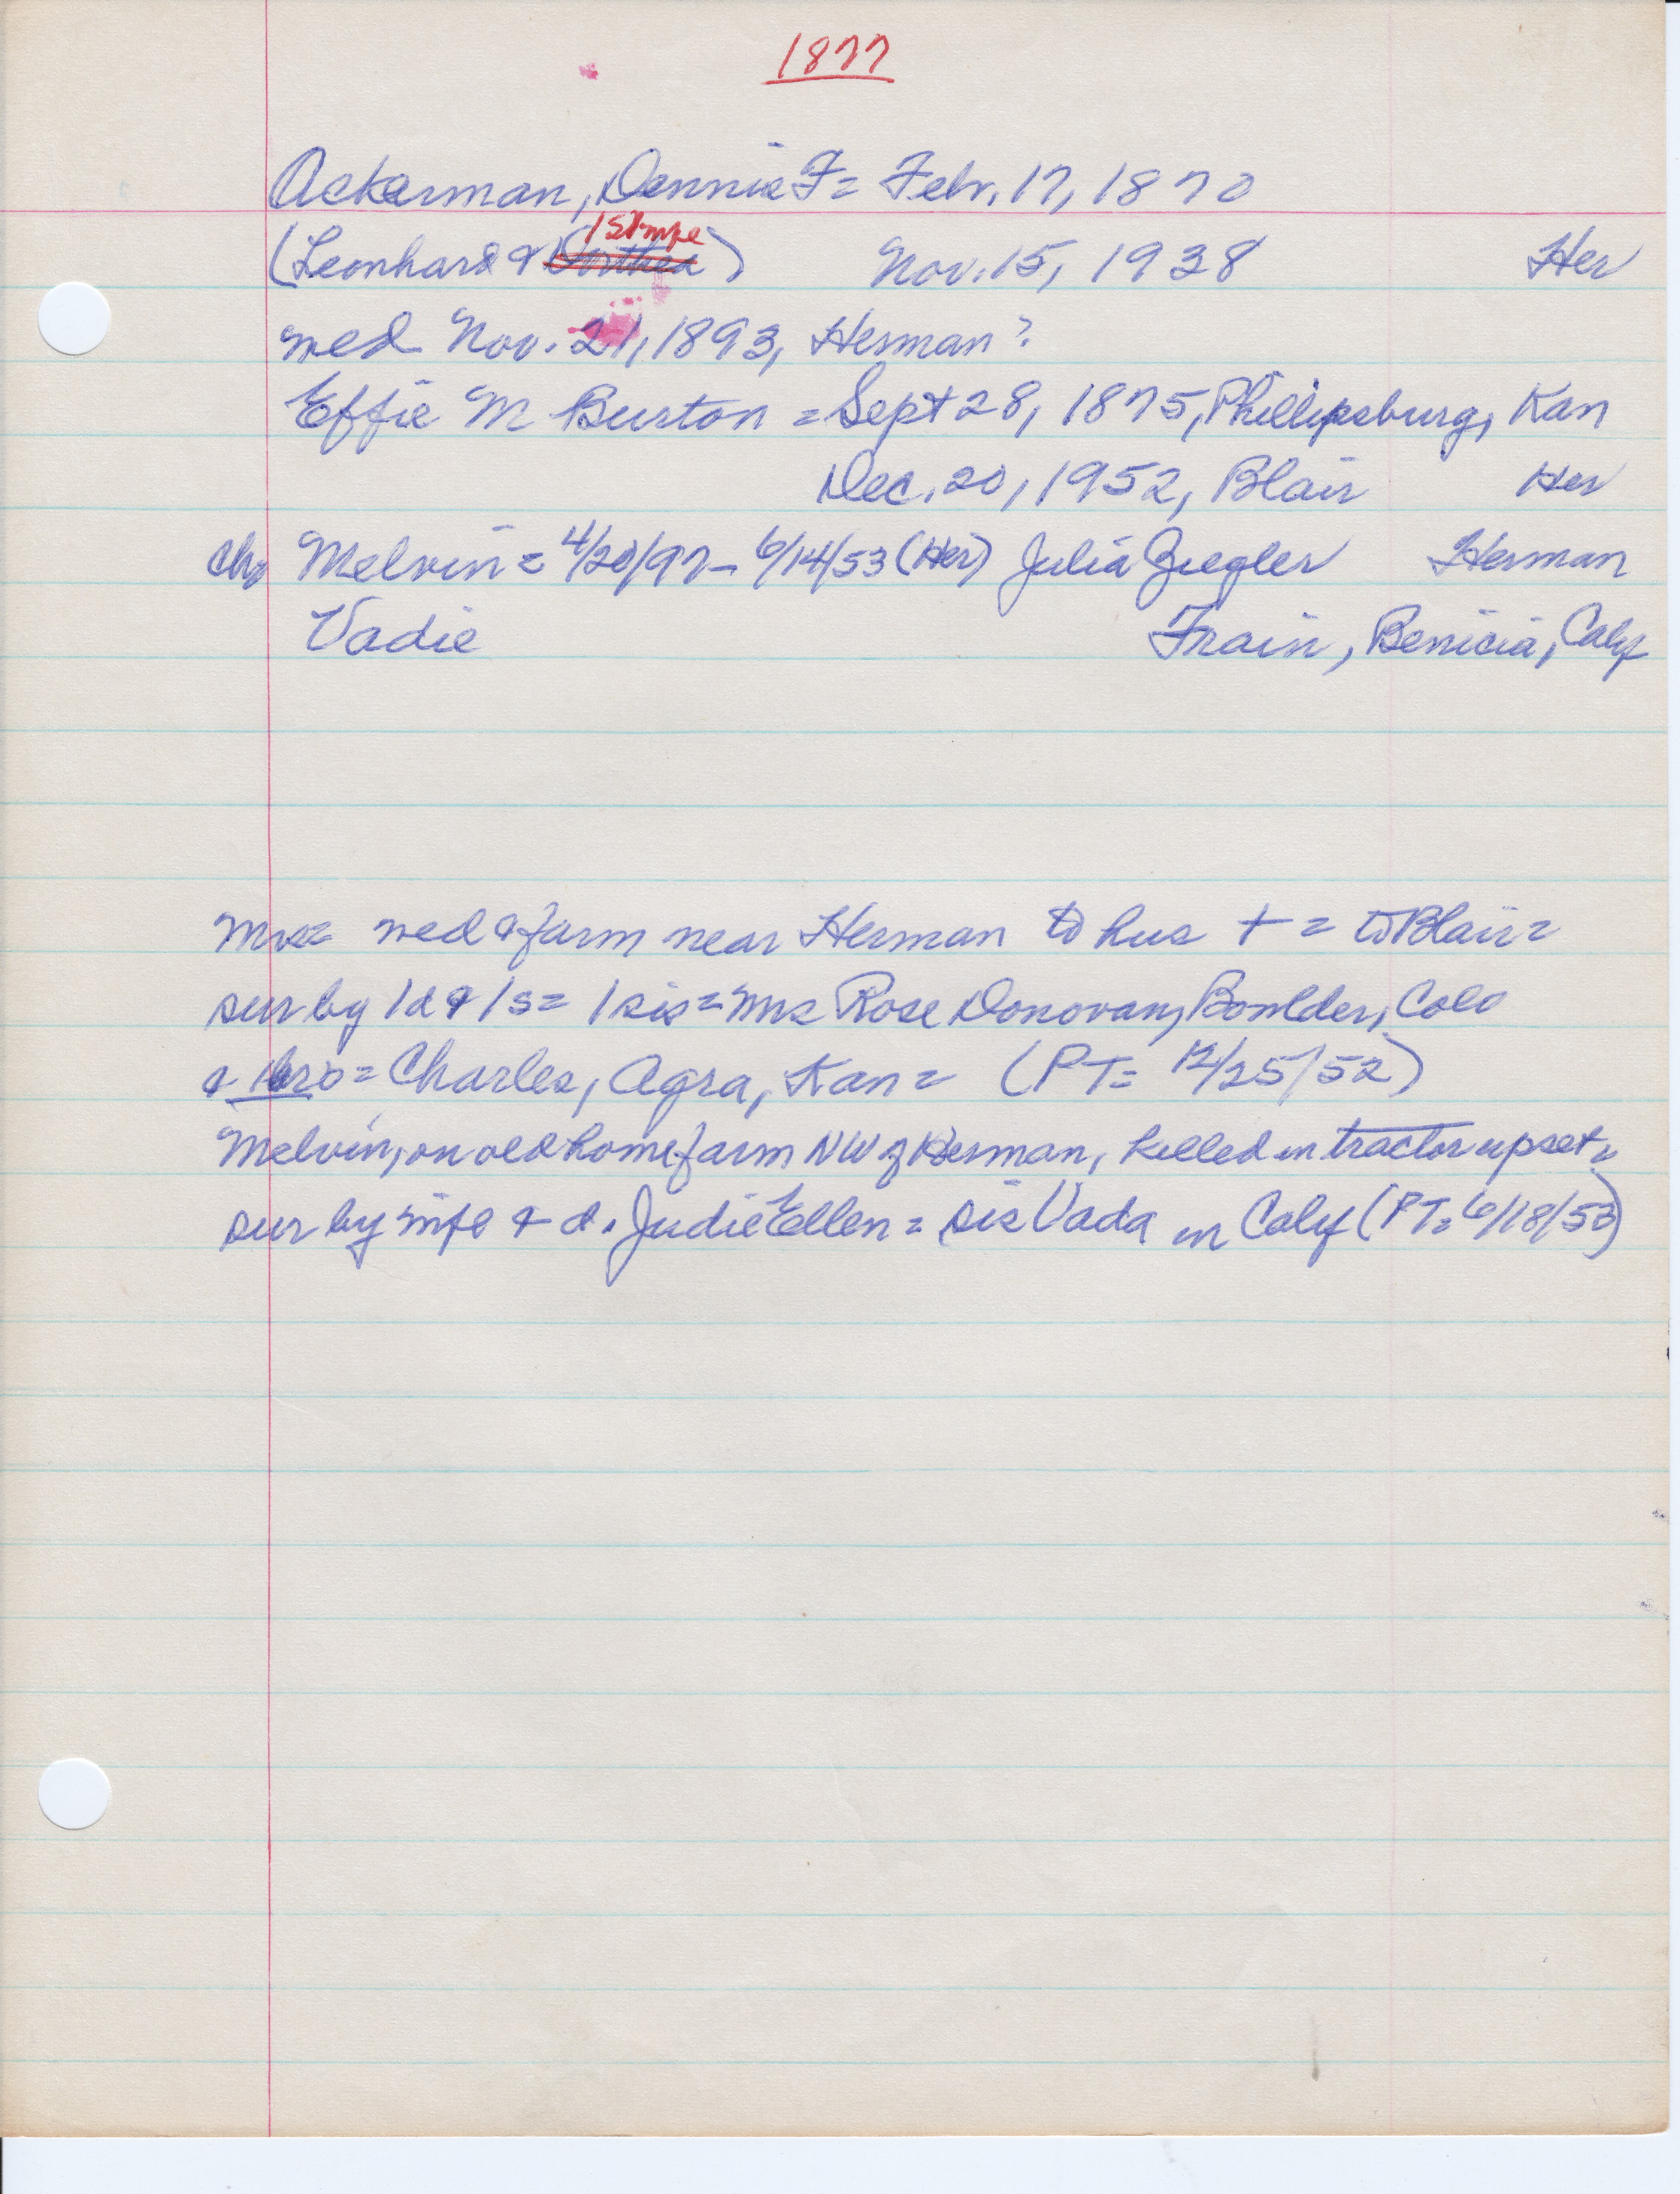 1877
Ackerman, Dennis F= Febr. 17, 1870
1st wife
(Leonhard & Dorthea) Nov. 15, 1938 Her
wed Nov. 21, 1893, Herman?
Effie M Burton = Sept 28, 1875, Phillipsburg, Kan
Dec. 20, 1952, Blair Her
ch, Melvin = 4/20/97 - 6/14/53 (Her) Julia Ziegler Herman
Vadie Frain, Benicia, Calif
Mrs= wed & farm near Herman to hus + = to Blair=
sur by 1d & 1s= 1 sis= Mrs Rose Donovan, Boulder, Colo
& 1 bro = Charles, Agra, Kan = (PT= 12/25/52)
Melvin, on old home farm NW of Herman, killed in tractor upset,
sur by wife & d. Judie Ellen = sis Vada in Calif (PT= 6/18/53)